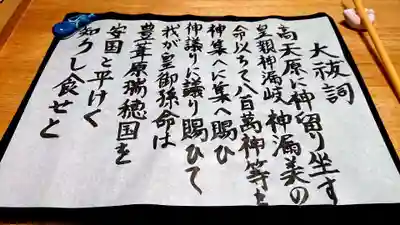 大祓詞
高天原に神留り坐す
皇親神漏岐神漏美の
命以ちて八百萬神等を
神集へに集へ賜ひ
神議りに議り賜ひて
我が皇御孫命は
豊葦原瑞穂国を
安国と平けく
知ろし食せと